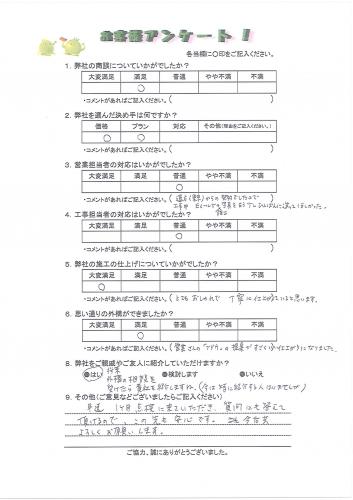 お客様アンケート！
各当欄に○印をご記入ください。
1. 弊社の商談についていかがでしたか？
大変満足 満足 普通 やや不満 不満
○
・コメントがあればご記入ください。( )
2. 弊社を選んだ決め手は何ですか？
価格 プラン 対応 その他（理由をご記入ください。）
○ ○
・コメントがあればご記入ください。( )
3. 営業担当者の対応はいかがでしたか？
大変満足 満足 普通 やや不満 不満
○
・コメントがあればご記入ください。(
4. 工事担当者の対応はいかがでしたか？
大変満足 満足 普通 やや不満 不満
○
・コメントがあればご記入ください。( )
5. 弊社の施工の仕上げについていかがでしたか？
大変満足 満足 普通 やや不満 不満
○
・コメントがあればご記入ください。(とてもおしゃれで 丁寧に仕上がっていると思います。
6. 思い通りの外構ができましたか？
大変満足 満足 普通 やや不満 不満
○
・コメントがあればご記入ください。(営業さんの プランの提案がすごく 仕上がりになりました。
8. 弊社をご親戚やご友人に紹介していただけますか？
●はい ●検討します ●いいえ
外構の相談を
受けたら 貴社を紹介しますね。
9. その他(ご意見などございましたらご記入ください)
早速 1ヶ月点検に来ていただき、質問にも答えて
頂けるので、この先も安心です。 今後共
よろしくお願いします。
ご協力、誠にありがとうございました。